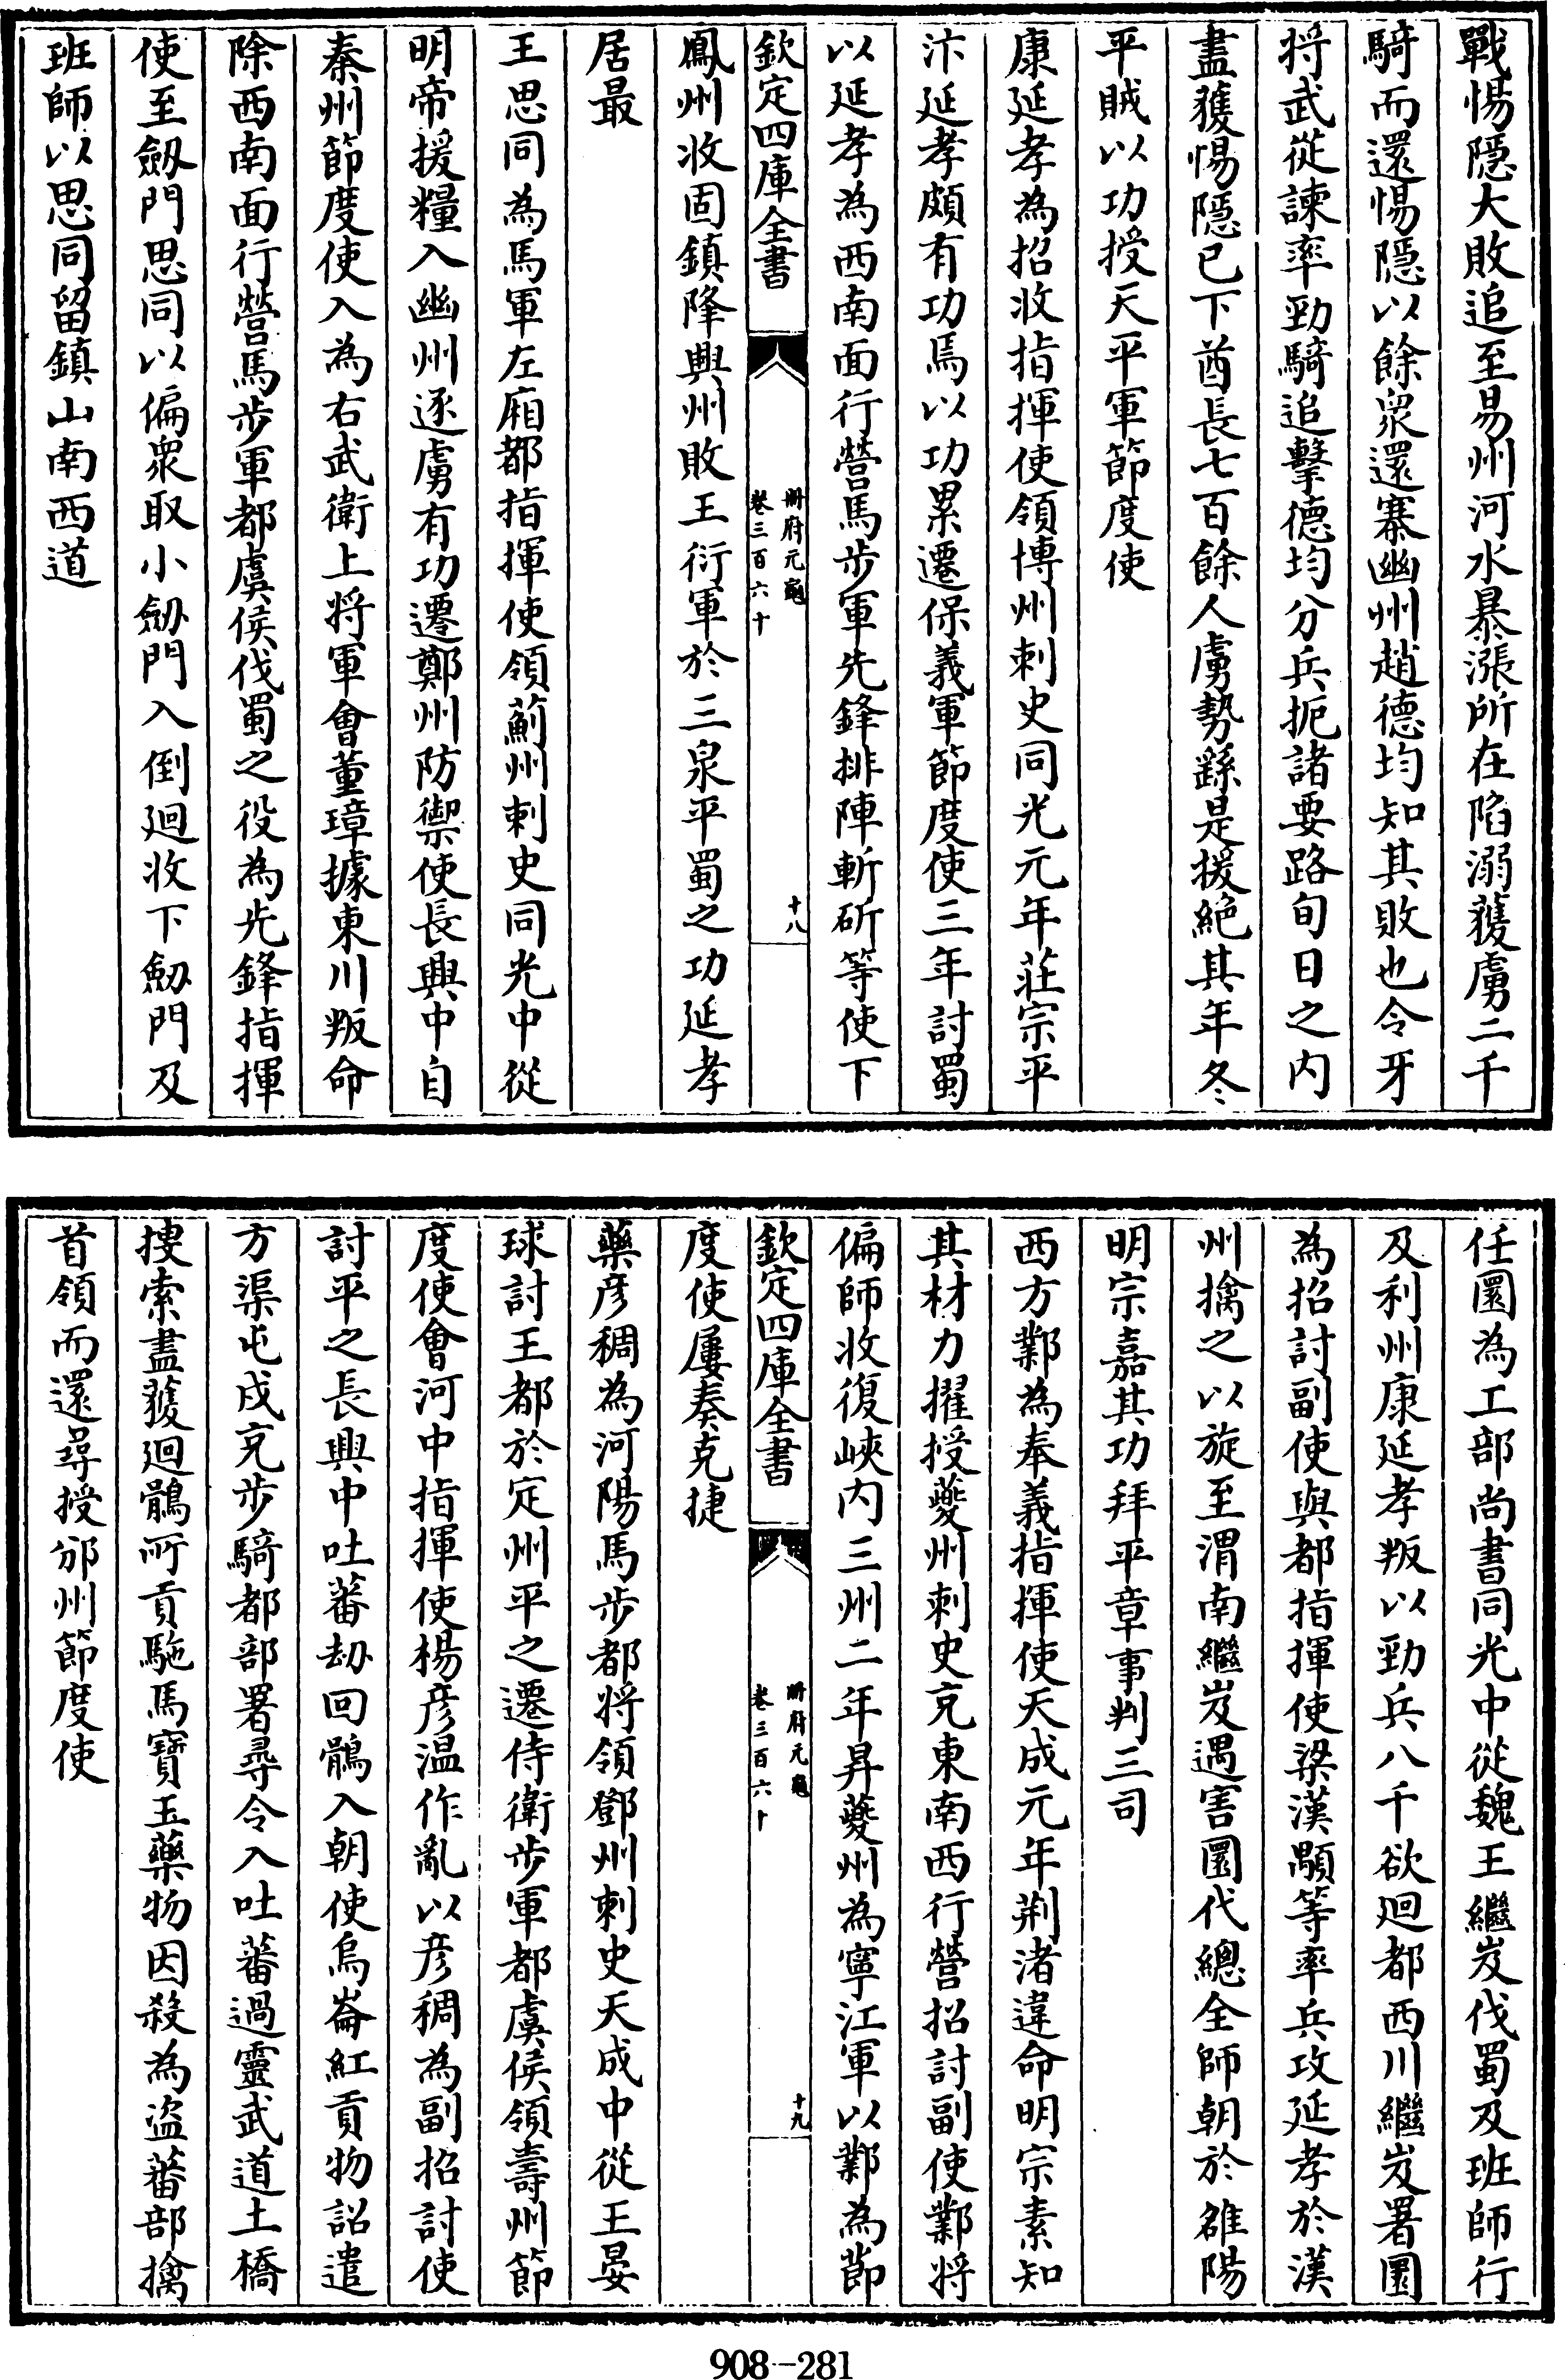 戰惕隱大敗追至易州河水暴漲所在陷溺獲虜二千
騎而還惕隱以餘衆還寨幽州趙德均知其敗也令牙
將武從諫率勁騎追擊德均分兵扼諸要路旬日之内
盡獲惕隱已下酋長七百餘人虜勢繇是援絶其年冬
平賊以功授天平軍節度使
康延孝為招收指揮使領博州刺史同光元年莊宗平
汴延孝頗有功焉以功累遷保義軍節度使三年討蜀
以延孝為西南面行營馬步軍先鋒排陣斬斫等使下
欽定四庫全書
冊府元龜
卷三百六十
十八
鳳州收固鎮降興州敗王衍軍於三泉平蜀之功延孝
居最
王思同為馬軍左廂都指揮使領薊州刺史同光中從
明帝援糧入幽州逐虜有功遷鄭州防禦使長興中自
秦州節度使入為右武衛上將軍會董璋據東川叛命
除西南面行營馬步軍都虞侯伐蜀之役為先鋒指揮
使至劔門思同以偏衆取小劔門入倒廻收下劔門及
班師以思同留鎮山南西道
任圜為工部尚書同光中從魏王繼岌伐蜀及班師行
及利州康延孝叛以勁兵八千欲廻都西川繼岌署圜
為招討副使與都指揮使梁漢顒等率兵攻延孝於漢
州擒之以旋至渭南繼岌遇害圜代總全師朝於雒陽
明宗嘉其功拜平章事判三司
西方鄴為奉義指揮使天成元年荆渚違命明宗素知
其材力擢授夔州刺史充東南西行營招討副使鄴將
偏師收復峽内三州二年昇夔州為寧江軍以鄴為節
欽定四庫全書
冊府元龜
卷三百六十
十九
度使屢奏克捷
藥彦稠為河陽馬步都將領鄧州刺史天成中從王晏
球討王都於定州平之遷侍衛步軍都虞侯領壽州節
度使會河中指揮使楊彦温作亂以彦稠為副招討使
討平之長興中吐蕃刼回鶻入朝使烏崙紅貢物詔遣
方渠屯戍充步騎都部署尋令入吐蕃過靈武道土橋
摟索盡獲廻鶻所貢駞馬寶玉藥物因殺為盜蕃部擒
首領而還尋授邠州節度使
908-281